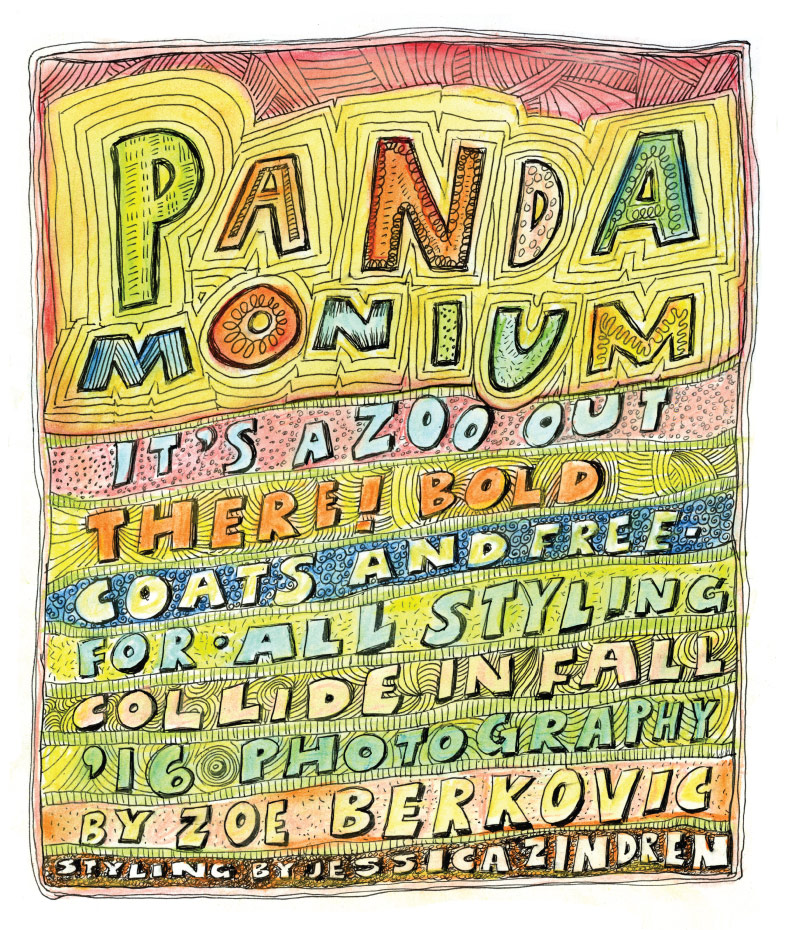 PANDA
MONIUM
IT'S A ZOO OUT
THERE! BOLD
COATS AND FREE-
FOR-ALL STYLING
COLLIDE IN FALL
'16 PHOTOGRAPHY
BY ZOE BERKOVIC
STYLING BY JESSICA ZINDREN